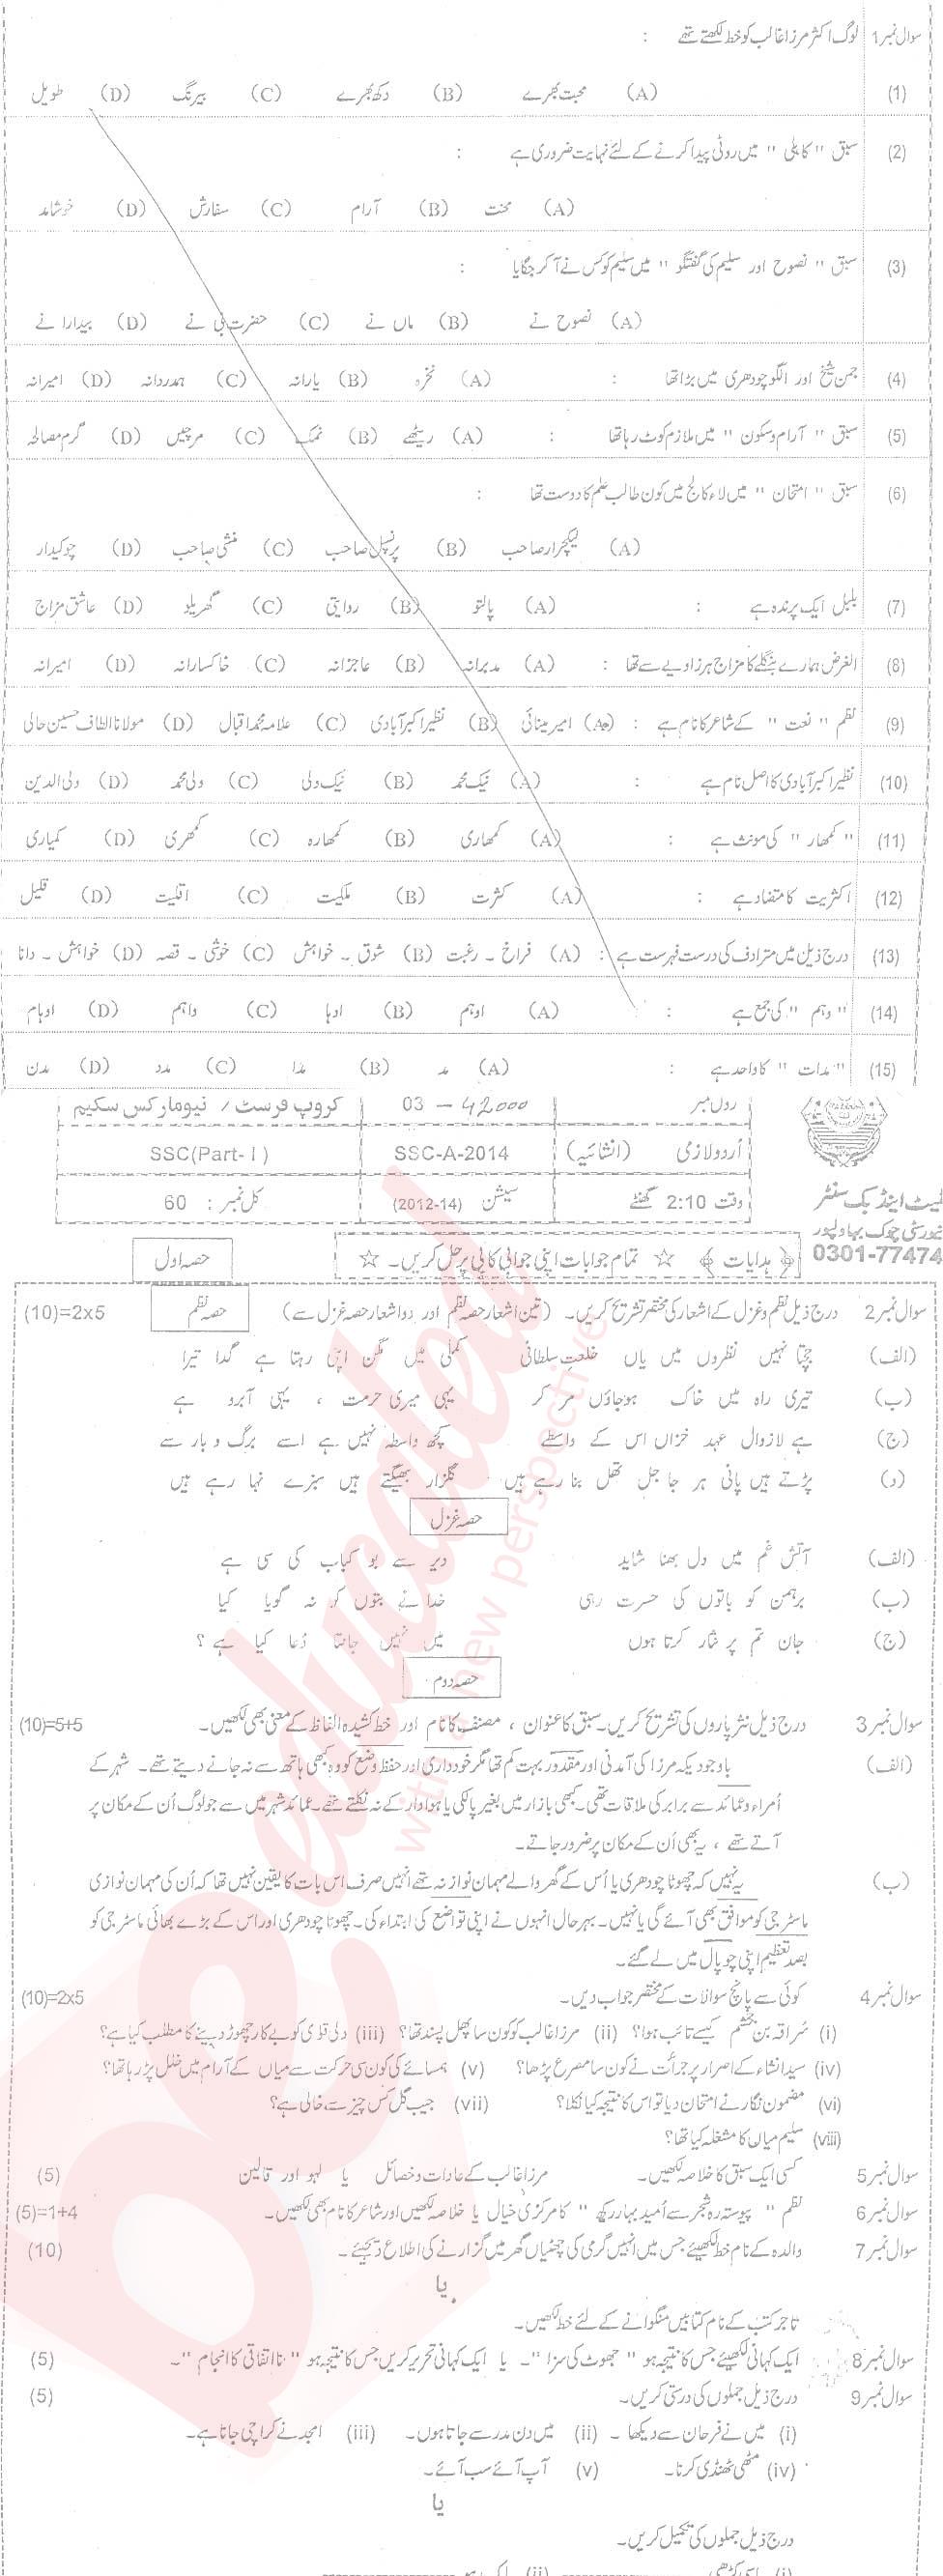 سوال نمبر 1 لوگ اکثر مرزا غالب کو خط لکھتے تھے :
(1) (A) محبت بھرے (B) دکھ بھرے (C) بیرنگ (D) طویل
(2) سبق " کاہلی " میں روٹی پیدا کرنے کے لئے نہایت ضروری ہے :
(A) محنت (B) آرام (C) سفارش (D) خوشامد
(3) سبق " نصوح اور سلیم کی گفتگو " میں سلیم کو کس نے آ کر جگایا :
(A) نصوح نے (B) ماں نے (C) حضرت بی نے (D) بیدارا نے
(4) جمن شیخ اور الگو چودھری میں بڑا تھا : (A) نخرہ (B) یارانہ (C) ہمدردانہ (D) امیرانہ
(5) سبق " آرام و سکون " میں ملازم کوٹ رہا تھا : (A) ریٹھے (B) نمک (C) مرچیں (D) گرم مصالحہ
(6) سبق " امتحان " میں لاء کالج میں کون طالب علم کا دوست تھا :
(A) لیکچرار صاحب (B) پرنسپل صاحب (C) منشی صاحب (D) چوکیدار
(7) بلبل ایک پرندہ ہے : (A) پالتو (B) روایتی (C) گھریلو (D) عاشق مزاج
(8) الغرض ہمارے بنگلے کا مزاج ہر زاویے سے تھا : (A) مدبرانہ (B) عاجزانہ (C) خاکسارانہ (D) امیرانہ
(9) نظم " نعت " کے شاعر کا نام ہے : (A) امیر مینائی (B) نظیر اکبر آبادی (C) علامہ محمد اقبال (D) مولانا الطاف حسین حالی
(10) نظیر اکبر آبادی کا اصل نام ہے : (A) نیک محمد (B) نیک ولی (C) ولی محمد (D) ولی الدین
(11) " کمھار " کی مونث ہے : (A) کمھاری (B) کمھارہ (C) کمھری (D) کمیاری
(12) اکثریت کا متضاد ہے : (A) کثرت (B) ملکیت (C) اقلیت (D) قلیل
(13) درج ذیل میں مترادف کی درست فہرست ہے : (A) فراخ ۔ رغبت (B) شوق ۔ خواہش (C) خوشی ۔ قصہ (D) خواہش ۔ دانا
(14) " وہم " کی جمع ہے : (A) اوہم (B) اوہا (C) واہم (D) اوہام
(15) " مدات " کا واحد ہے : (A) مد (B) مدا (C) مدد (D) مدن
رول نمبر 03 – 42000 گروپ فرسٹ / نیو مارکس سکیم
اُردو لازمی (انشائیہ) SSC-A-2014 SSC(Part-I)
وقت 2:10 گھنٹے سیشن (2012-14) کل نمبر : 60
0301-77474
﴿ ہدایات ﴾ ☆ تمام جوابات اپنی جوابی کاپی پر حل کریں۔ ☆ حصہ اول
سوال نمبر 2 درج ذیل نظم و غزل کے اشعار کی مختصر تشریح کریں۔ (تین اشعار حصہ نظم اور دو اشعار حصہ غزل سے) حصہ نظم (10)=2x5
(الف) جچتا نہیں نظروں میں یاں خلعتِ سلطانی کملی میں مگن اپنی رہتا ہے گدا تیرا
(ب) تیری راہ میں خاک ہو جاؤں مر کر یہی میری حرمت ، یہی آبرو ہے
(ج) ہے لازوال عہد خزاں اس کے واسطے کچھ واسطہ نہیں ہے اسے برگ و بار سے
(د) پڑتے ہیں پانی ہر جا جل تھل بنا رہے ہیں گلزار بھیگتے ہیں سبزے نہا رہے ہیں
حصہ غزل
(الف) آتش غم میں دل بھنا شاید دیر سے بو کباب کی سی ہے
(ب) برہمن کو باتوں کی حسرت رہی خدا نے بتوں کو نہ گویا کیا
(ج) جان تم پر نثار کرتا ہوں میں نہیں جانتا دُعا کیا ہے ؟
حصہ دوم
سوال نمبر 3 درج ذیل نثر پاروں کی تشریح کریں۔ سبق کا عنوان ، مصنف کا نام اور خط کشیدہ الفاظ کے معنی بھی لکھیں۔ (10)=5+5
(الف) باوجودیکہ مرزا کی آمدنی اور مقدور بہت کم تھا مگر خودداری اور حفظ وضع کو وہ کبھی ہاتھ سے نہ جانے دیتے تھے۔ شہر کے
اُمراء و عمائد سے برابر کی ملاقات تھی۔ کبھی بازار میں بغیر پالکی یا ہوادار کے نہ نکلتے تھے۔ عمائد شہر میں سے جو لوگ اُن کے مکان پر
آتے تھے ، یہ بھی اُن کے مکان پر ضرور جاتے۔
(ب) یہ نہیں کہ چھوٹا چودھری یا اُس کے گھر والے مہمان نواز نہ تھے انہیں صرف اس بات کا یقین نہیں تھا کہ اُن کی مہمان نوازی
ماسٹر جی کو موافق بھی آئے گی یا نہیں۔ بہرحال انہوں نے اپنی تواضع کی ابتداء کی۔ چھوٹا چودھری اور اس کے بڑے بھائی ماسٹر جی کو
بصد تعظیم اپنی چوپال میں لے گئے۔
سوال نمبر 4 کوئی سے پانچ سوالات کے مختصر جواب دیں۔ (10)=2x5
(i) سُراقہ بن جُعشم کیسے تائب ہوا؟ (ii) مرزا غالب کو کون سا پھل پسند تھا؟ (iii) دلی قویٰ کو بے کار چھوڑ دینے کا مطلب کیا ہے؟
(iv) سید انشاء کے اصرار پر جرأت نے کون سا مصرع پڑھا؟ (v) ہمسائے کی کون سی حرکت سے میاں کے آرام میں خلل پڑ رہا تھا؟
(vi) مضمون نگار نے امتحان دیا تو اس کا نتیجہ کیا نکلا؟ (vii) جیب گل کس چیز سے خالی ہے؟
(viii) سلیم میاں کا مشغلہ کیا تھا؟
سوال نمبر 5 کسی ایک سبق کا خلاصہ لکھیں۔ مرزا غالب کے عادات و خصائل یا لہو اور قالین (5)
سوال نمبر 6 نظم " پیوستہ رہ شجر سے اُمید بہار رکھ " کا مرکزی خیال یا خلاصہ لکھیں اور شاعر کا نام بھی لکھیں۔ (5)=1+4
سوال نمبر 7 والدہ کے نام خط لکھیئے جس میں انہیں گرمی کی چھٹیاں گھر میں گزارنے کی اطلاع دیجئے۔ (10)
یا
تاجر کتب کے نام کتابیں منگوانے کے لئے خط لکھیں۔
سوال نمبر 8 ایک کہانی لکھیئے جس کا نتیجہ ہو " جھوٹ کی سزا "۔ یا ایک کہانی تحریر کریں جس کا نتیجہ ہو " نا اتفاقی کا انجام "۔ (5)
سوال نمبر 9 درج ذیل جملوں کی درستی کریں۔ (5)
(i) میں نے فرحان سے دیکھا۔ (ii) میں دن مدرسے جاتا ہوں۔ (iii) امجد نے کراچی جاتا ہے۔
(iv) مٹھی ٹھنڈی کرنا۔ (v) آپ آئے سب آئے۔
یا
درج ذیل جملوں کی تکمیل کریں۔
beeducated
with a new perspective